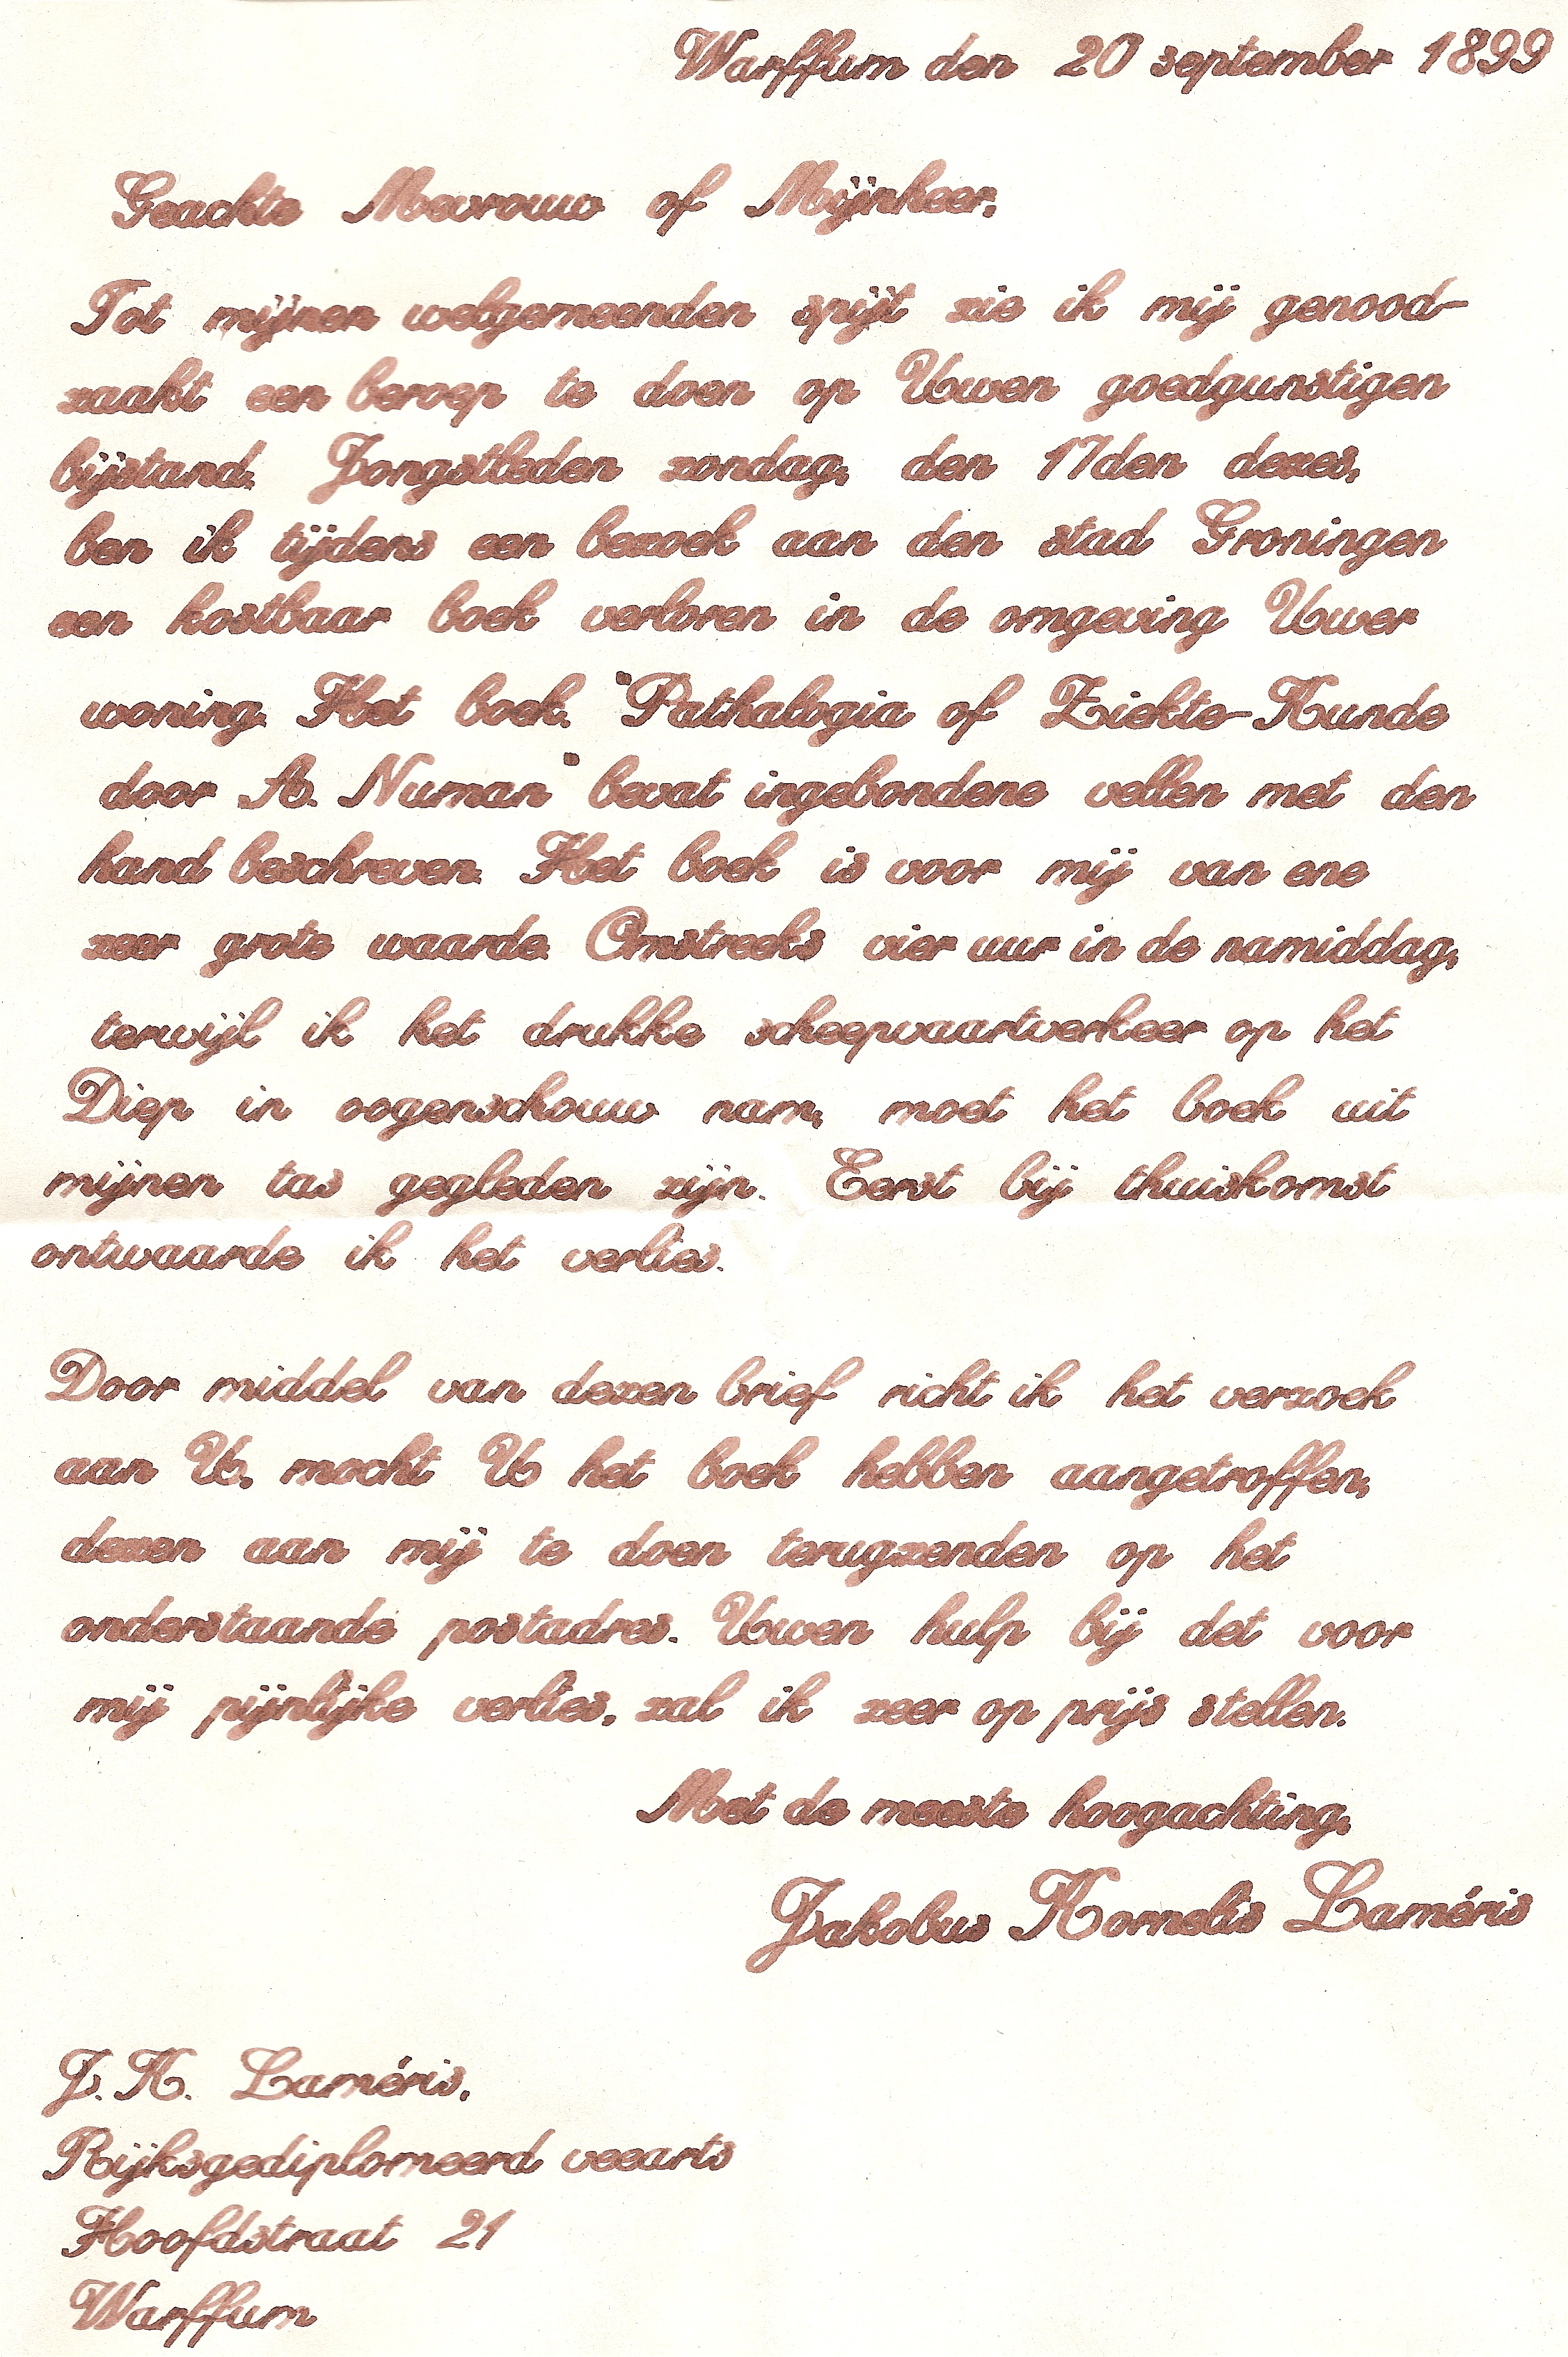 Warffum den 20 september 1899
Geachte Mevrouw of Mijnheer,
Tot mijnen welgemeenden spijt zie ik mij genood-
zaakt een beroep te doen op Uwen goedgunstigen
bijstand. Jongstleden zondag, den 17den dezes,
ben ik tijdens een bezoek aan den stad Groningen
een kostbaar boek verloren in de omgeving Uwer
woning. Het boek. "Pathalogia of Ziekte-Kunde
door A. Numan" bevat ingebondene vellen met den
hand beschreven. Het boek is voor mij van ene
zeer grote waarde. Omstreeks vier uur in de namiddag,
terwijl ik het drukke scheepvaartverkeer op het
Diep in oogenschouw nam, moet het boek uit
mijnen tas gegleden zijn. Eerst bij thuiskomst
ontwaarde ik het verlies.
Door middel van dezen brief richt ik het verzoek
aan U, mocht U het boek hebben aangetroffen,
dezen aan mij te doen terugzenden op het
onderstaande postadres. Uwen hulp bij det voor
mij pijnlijke verlies, zal ik zeer op prijs stellen.
Met de meeste hoogachting,
Jakobus Kornelis Laméris
J. K. Laméris,
Rijksgediplomeerd veearts
Hoofdstraat 21
Warffum